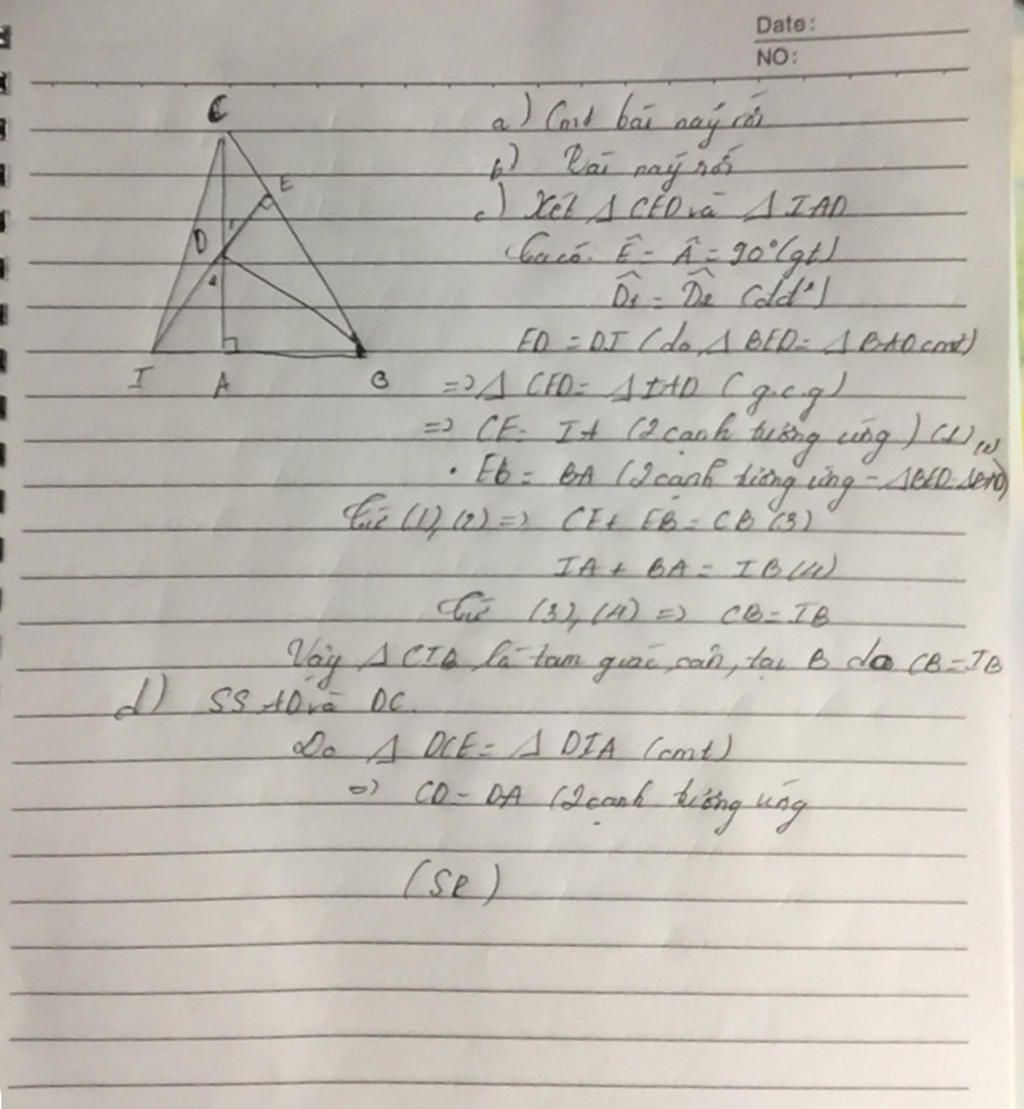 Date:
NO:
C
E
D
1
2
I
A
B
a) Cmt bài này rồi
b) Bài này rồi
c) Xét Δ CED và Δ IAD
Ta có: Ê = Â = 90° (gt)
D̂1 = D̂2 (dd²)
ED = DI (do Δ BED = Δ BAD cmt)
=> Δ CED = Δ IAD (g.c.g)
=> CE = IA (2 cạnh tương ứng) (1)
• EB = BA (2 cạnh tương ứng - ΔBED = ΔBAD)
Từ (1), (2) => CE + EB = CB (3)
IA + BA = IB (4)
Từ (3), (4) => CB = IB
Vậy Δ CIB là tam giác cân tại B do CB = IB
d) SS AD và DC.
Do Δ DCE = Δ DIA (cmt)
=> CD = DA (2 cạnh tương ứng